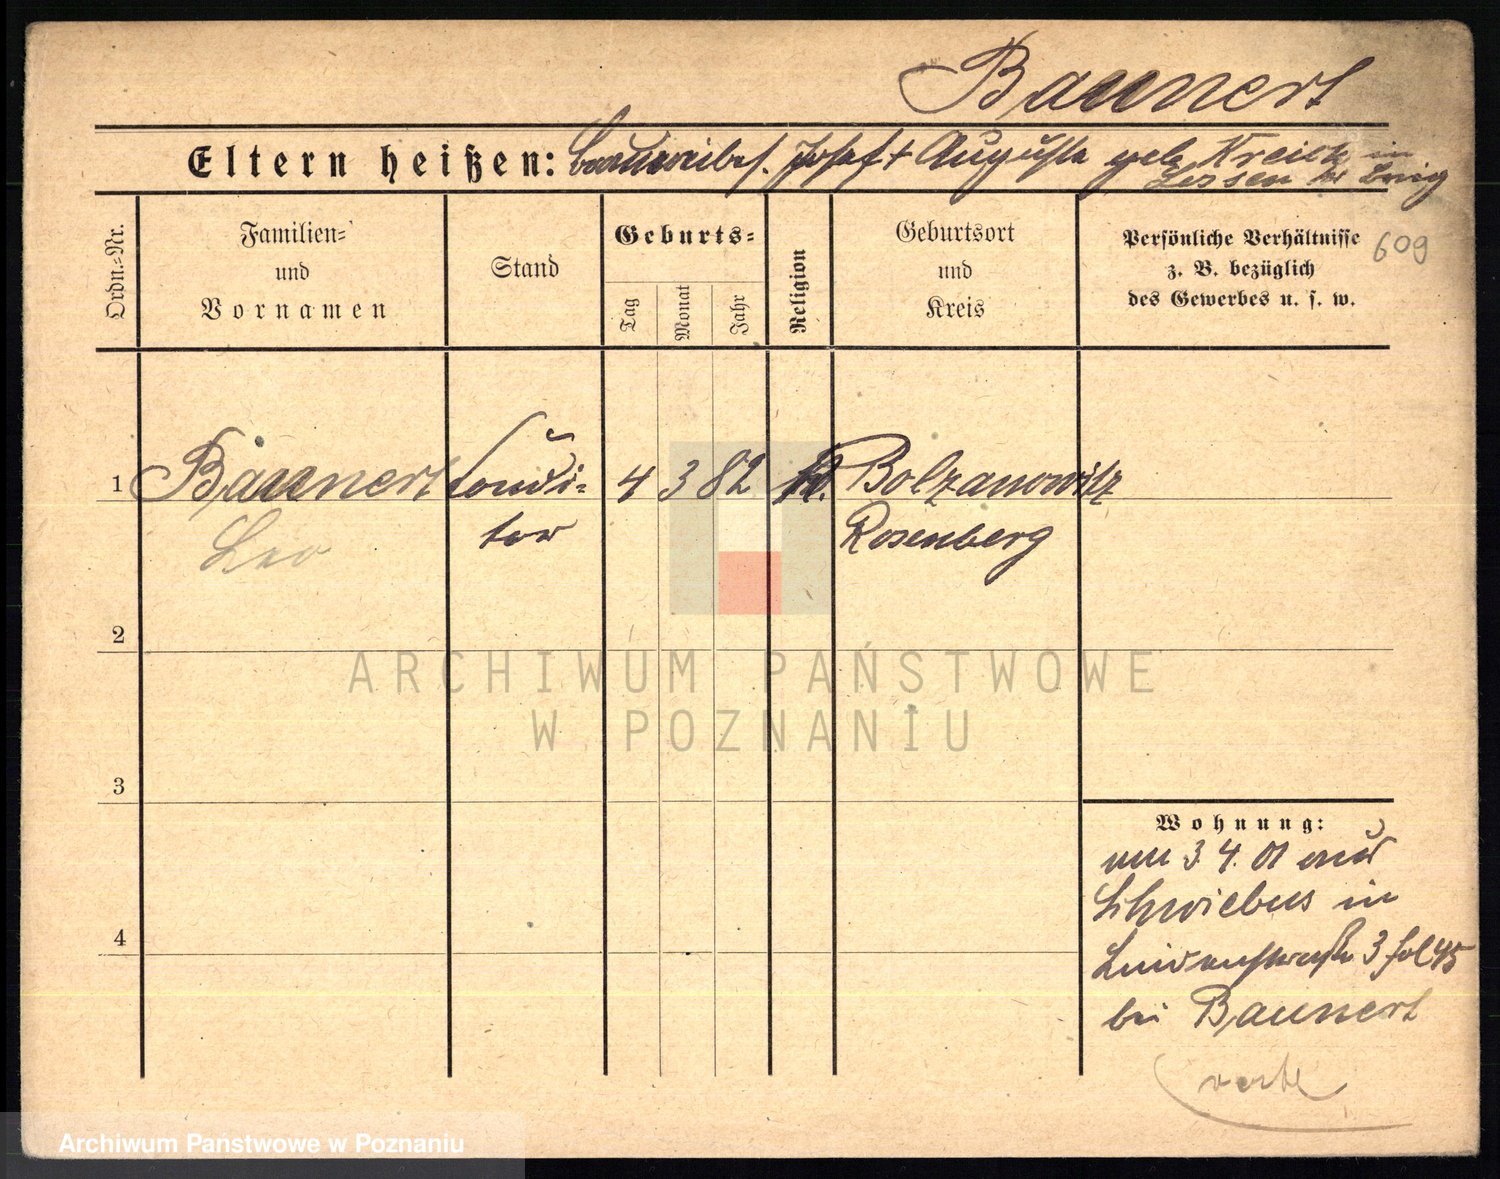 Baunert
Eltern heißen: Josef + Augusta geb. Kreick in
Lessen Kr Brieg
Ordn.-Nr.
Familien-
und
Vornamen
Stand
Geburts-
Tag
Monat
Jahr
Religion
Geburtsort
und
Kreis
Persönliche Verhältnisse
z. B. bezüglich
des Gewerbes u. s. w.
609
1 Baunert Condi- 4 3 82 k. Bolzanowitz
Leo tor Rosenberg
2
ARCHIWUM PAŃSTWOWE
W POZNANIU
3
Wohnung:
am 3.4.01 aus
Schwiebus in
3 fol 45
4
bei Baunert
Archiwum Państwowe w Poznaniu